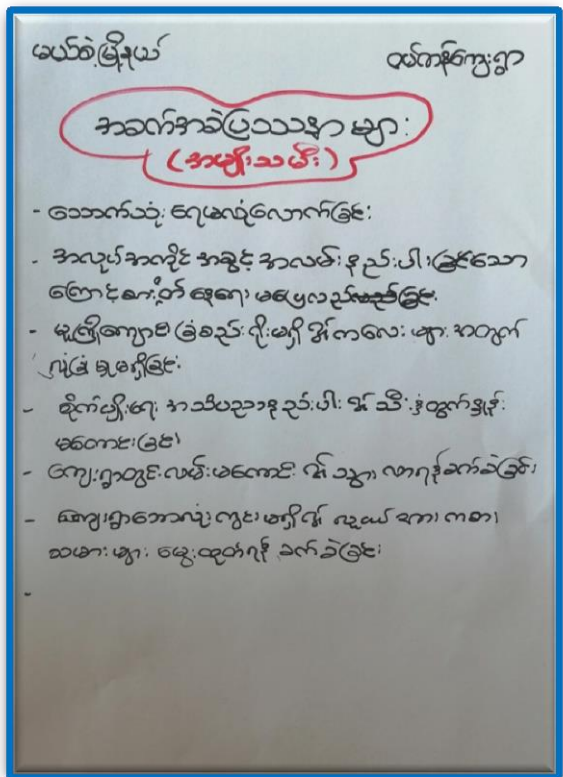 မယ်စဲ့မြို့နယ်
ဝမ်ကန်ကျေးရွာ
အခက်အခဲပြဿနာများ
(အမျိုးသမီး)
- သောက်သုံးရေမလုံလောက်ခြင်း
- အလုပ်အကိုင်အခွင့်အလမ်းနည်းပါးခြင်းသော
ကြောင့်စားဝတ်နေရေးမပြေလည်ခြင်း
- မူကြိုကျောင်းခြံစည်းရိုးမရှိ၍ကလေးများအတွက်
လုံခြုံမှုမရှိခြင်း
- စိုက်ပျိုးရေးအသိပညာနည်းပါး၍သီးနှံထွက်နှုန်း
မကောင်းခြင်း
- ကျေးရွာတွင်းလမ်းမကောင်း၍သွားလာရန်ခက်ခဲခြင်း
- ကျေးရွာဘောလုံးကွင်းမရှိ၍လူငယ်အားကစား
သမားများမွေးထုတ်ရန်ခက်ခဲခြင်း
-